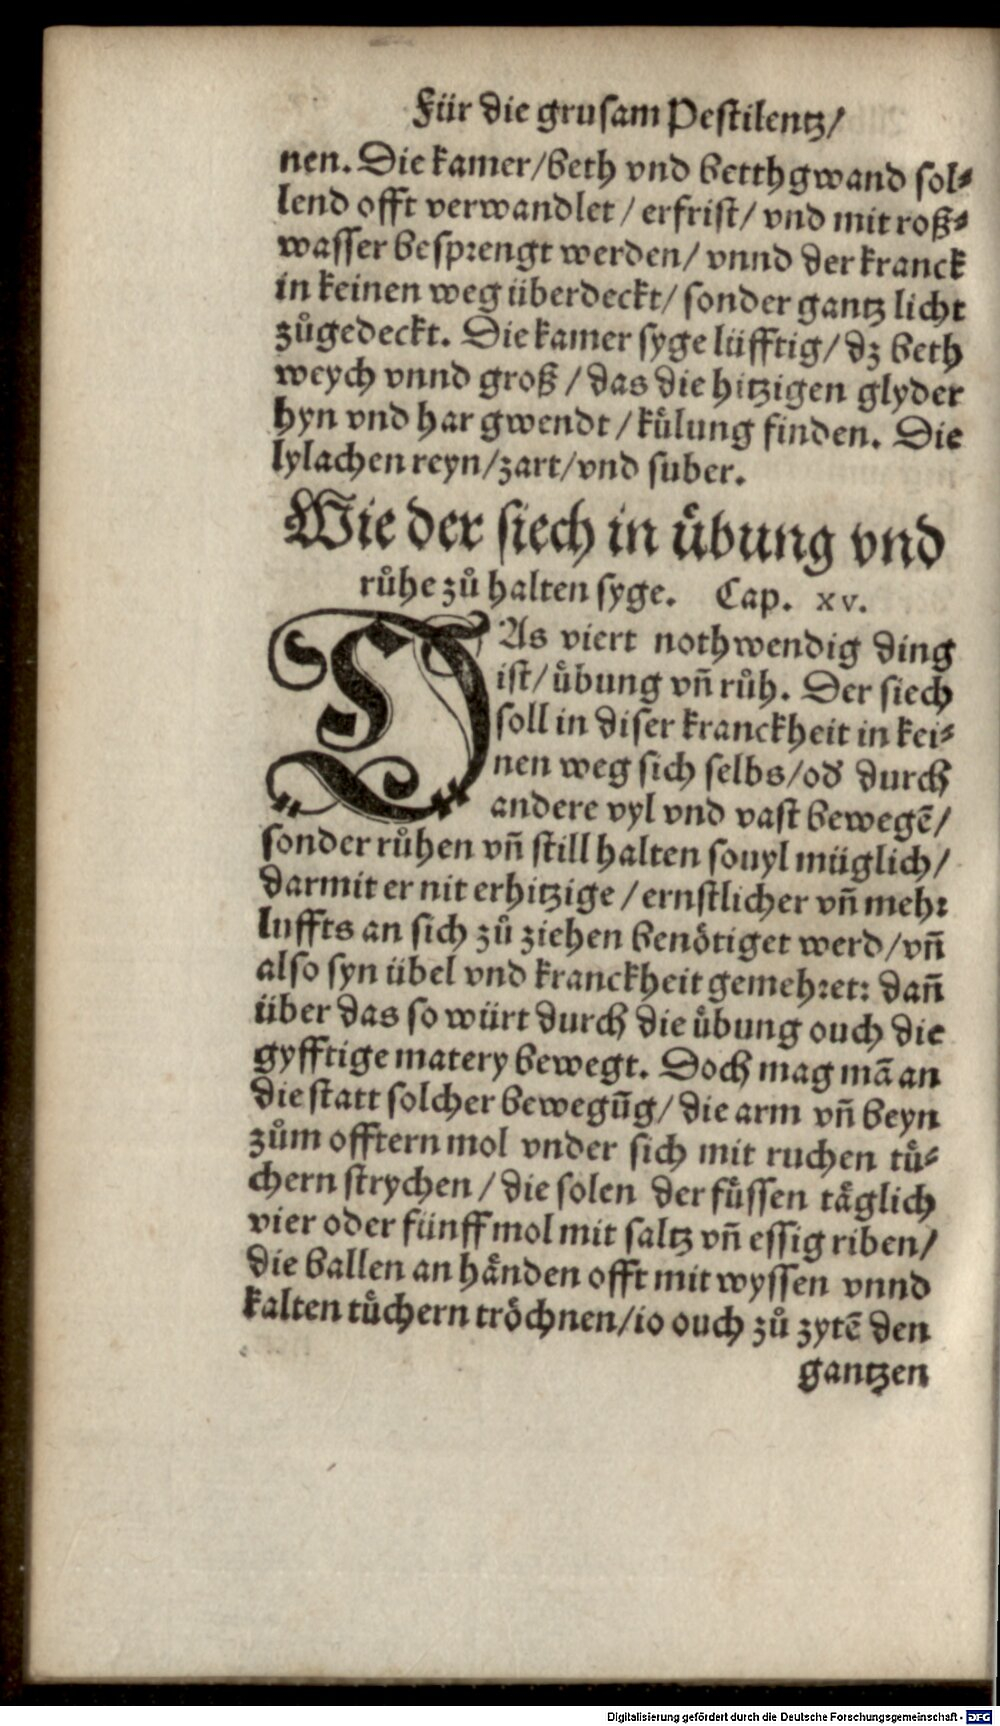 Für die grusam Pestilentz/
nen. Die kamer/beth vnd betthgwand sol⸗
lend offt verwandlet / erfrist/ vnd mit roß⸗
wasser besprengt werden/ vnnd der kranck
in keinen weg überdeckt/ sonder gantz licht
zůgedeckt. Die kamer syge lüfftig/ dz beth
weych vnnd groß / das die hitzigen glyder
hyn vnd har gwendt / kůlung finden. Die
lylachen reyn/zart/vnd suber.
Wie der siech in übung vnd
růhe zů halten syge. Cap. xv.
DAs viert nothwendig ding
ist/ übung vñ růh. Der siech
soll in diser kranckheit in kei⸗
nen weg sich selbs/od̕ durch
andere vyl vnd vast bewegẽ/
sonder růhen vñ still halten souyl müglich/
darmit er nit erhitzige / ernstlicher vñ mehr
luffts an sich zů ziehen benötiget werd/vñ
also syn übel vnd kranckheit gemehret: dañ
über das so würt durch die übung ouch die
gyfftige matery bewegt. Doch mag mã an
die statt solcher bewegũg/ die arm vñ beyn
zům offtern mol vnder sich mit ruchen tü⸗
chern strychen / die solen der füssen täglich
vier oder fünff mol mit saltz vñ essig riben/
die ballen an händen offt mit wyssen vnnd
kalten tüchern tröchnen/io ouch zů zytẽ den
gantzen
Digitalisierung gefördert durch die Deutsche Forschungsgemeinschaft - DFG